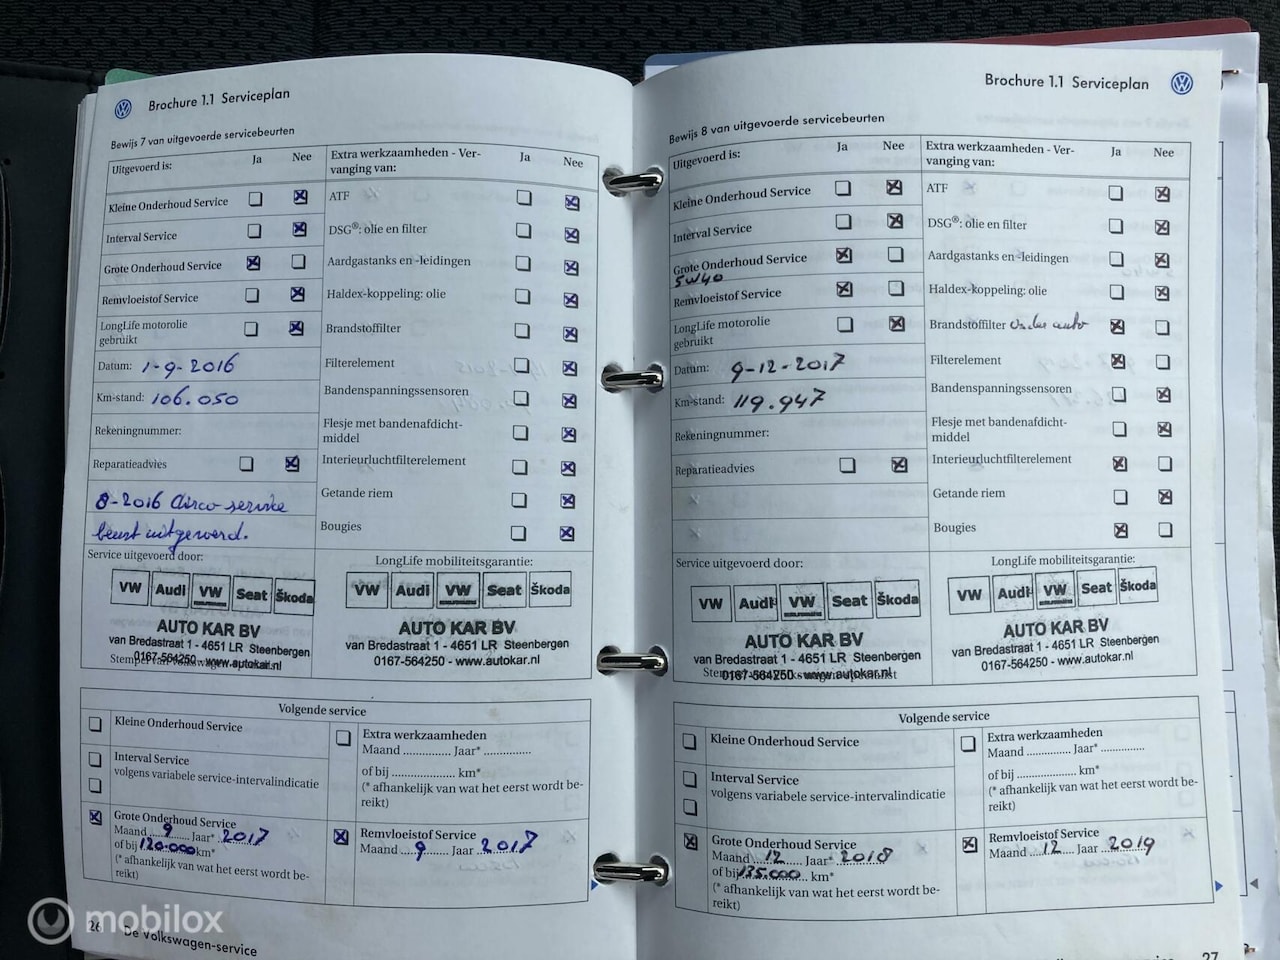 Brochure 1.1 Serviceplan
Bewijs 7 van uitgevoerde servicebeurten
Uitgevoerd is: Ja Nee
Kleine Onderhoud Service
Interval Service
Grote Onderhoud Service
Remvloeistof Service
LongLife motorolie
gebruikt
Datum: 1-9-2016
Km-stand: 106.050
Rekeningnummer:
Reparatieadvies
8-2016 Airco service
beurt uitgevoerd.
Extra werkzaamheden - Ver-
vanging van: Ja Nee
ATF
DSG®: olie en filter
Aardgastanks en -leidingen
Haldex-koppeling: olie
Brandstoffilter
Filterelement
Bandenspanningssensoren
Flesje met bandenafdicht-
middel
Interieurluchtfilterelement
Getande riem
Bougies
Service uitgevoerd door:
VW Audi VW Seat Škoda
AUTO KAR BV
van Bredastraat 1 - 4651 LR Steenbergen
0167-564250 - www.autokar.nl
LongLife mobiliteitsgarantie:
VW Audi VW Seat Škoda
AUTO KAR BV
van Bredastraat 1 - 4651 LR Steenbergen
0167-564250 - www.autokar.nl
Volgende service
Kleine Onderhoud Service
Interval Service
volgens variabele service-intervalindicatie
Grote Onderhoud Service
Maand 9 Jaar* 2017
of bij 120.000 km*
(* afhankelijk van wat het eerst wordt be-
reikt)
Extra werkzaamheden
Maand .............. Jaar* ..............
of bij .................... km*
(* afhankelijk van wat het eerst wordt be-
reikt)
Remvloeistof Service
Maand 9 Jaar 2017
De Volkswagen-service
Brochure 1.1 Serviceplan
Bewijs 8 van uitgevoerde servicebeurten
Uitgevoerd is: Ja Nee
Kleine Onderhoud Service
Interval Service
Grote Onderhoud Service
5W40
Remvloeistof Service
LongLife motorolie
gebruikt
Datum: 9-12-2017
Km-stand: 119.947
Rekeningnummer:
Reparatieadvies
Extra werkzaamheden - Ver-
vanging van: Ja Nee
ATF
DSG®: olie en filter
Aardgastanks en -leidingen
Haldex-koppeling: olie
Brandstoffilter onder auto
Filterelement
Bandenspanningssensoren
Flesje met bandenafdicht-
middel
Interieurluchtfilterelement
Getande riem
Bougies
Service uitgevoerd door:
VW Audi VW Seat Škoda
AUTO KAR BV
van Bredastraat 1 - 4651 LR Steenbergen
0167-564250 - www.autokar.nl
LongLife mobiliteitsgarantie:
VW Audi VW Seat Škoda
AUTO KAR BV
van Bredastraat 1 - 4651 LR Steenbergen
0167-564250 - www.autokar.nl
Volgende service
Kleine Onderhoud Service
Interval Service
volgens variabele service-intervalindicatie
Grote Onderhoud Service
Maand 12 Jaar* 2018
of bij 135.000 km*
(* afhankelijk van wat het eerst wordt be-
reikt)
Extra werkzaamheden
Maand .............. Jaar* ..............
of bij .................... km*
(* afhankelijk van wat het eerst wordt be-
reikt)
Remvloeistof Service
Maand 12 Jaar 2019
27
mobilox